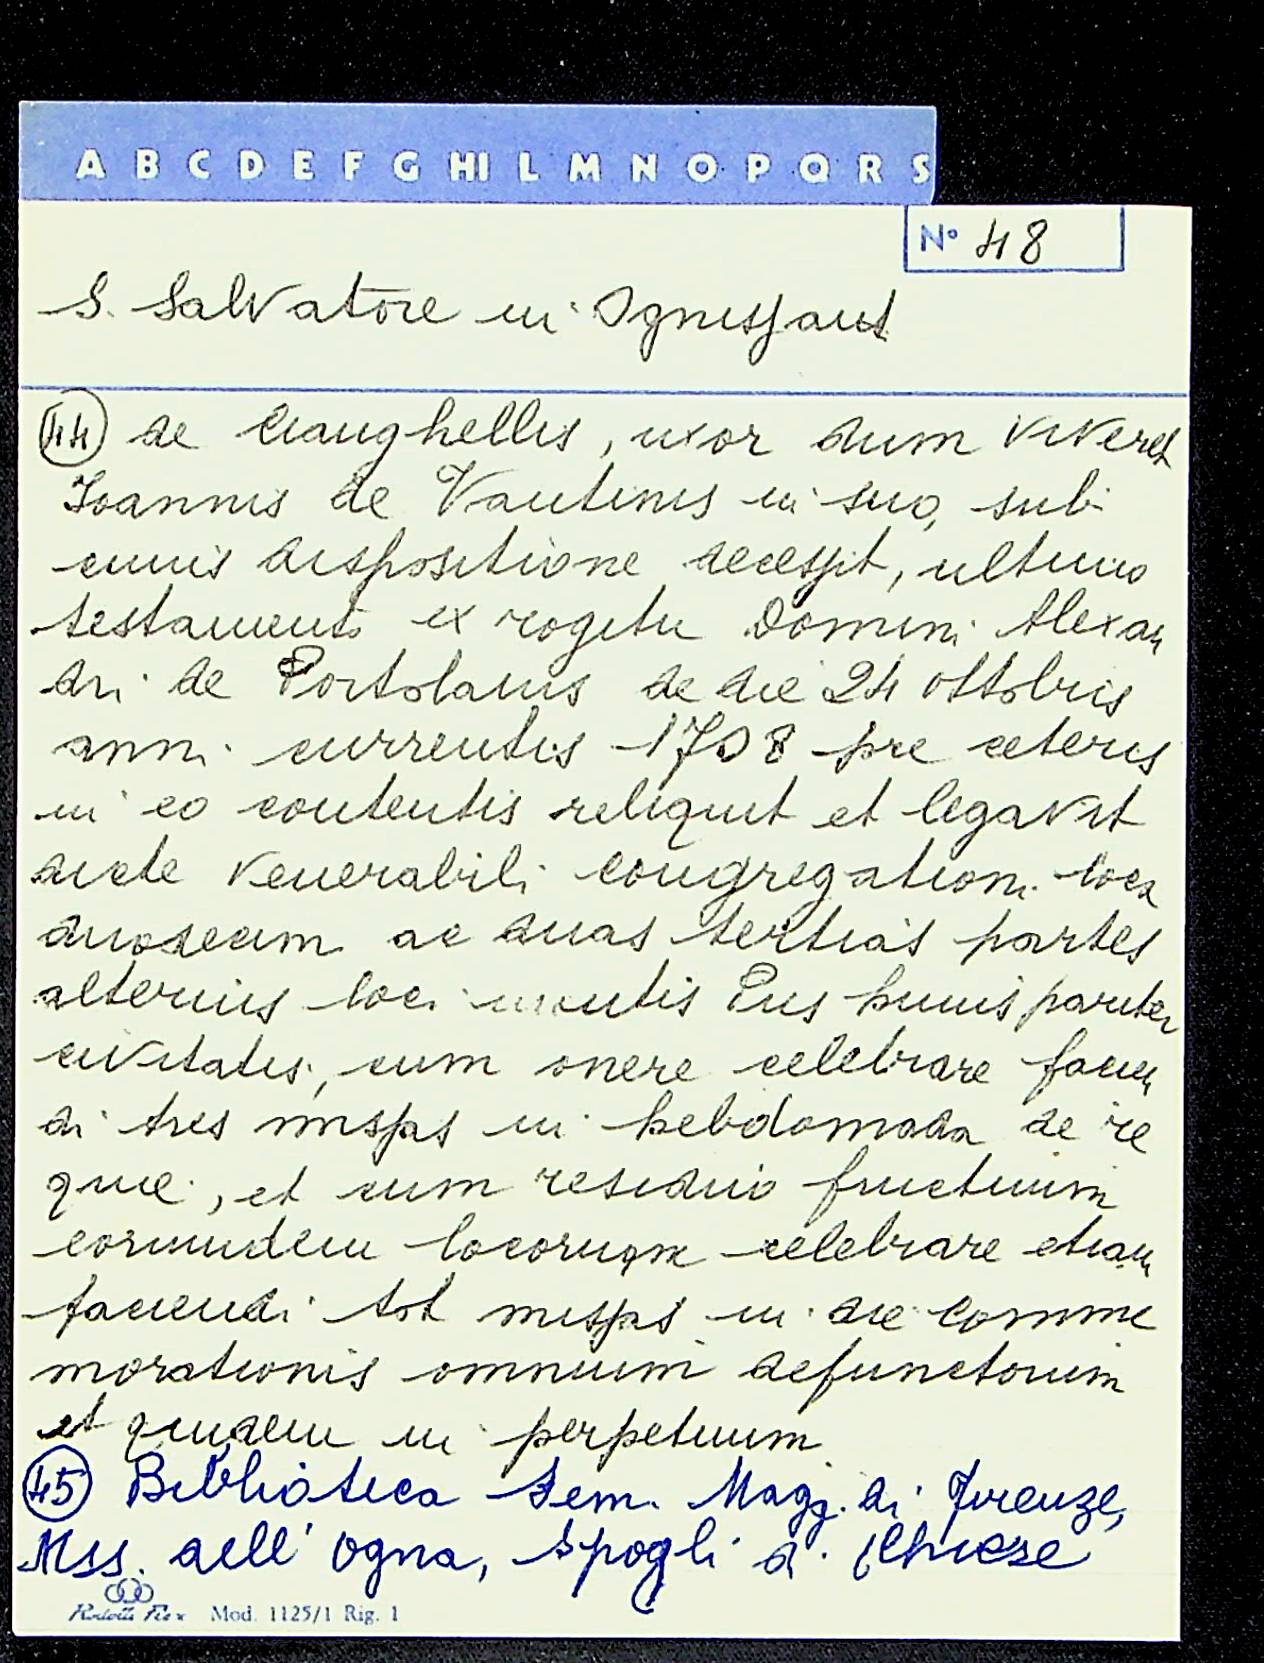 A B C D E F G HI L M N O P Q R S
N° 48
S. Salvatore in Ognissanti
44 de Cianghellis, uxor dum viveret
Ioannis de Vantinis in suo, sub
cuius dispositione decessit, ultimo
testamento ex rogitu Domini Alexan
dri de Portolanis de die 24 ottobris
anni currentis 1708 pre ceteris
in eo contentis reliquit et legavit
dicte venerabili congregationi loca
duodecim ac duas tertias partes
alterius loci montis Pius huius pariter
civitatis, cum onere celebrare facien
di tres missas in hebdomada de re
quie, et cum residuo fructuum
eorumdem locorum celebrare etiam
faciendi tot missas in die comme
morationis omnium defunctorum
et quidem in perpetuum
45 Biblioteca Sem. Magg. di Firenze,
Mss. dell'Ogna, Spogli di Chiese
Mod. 1125/1 Rig. 1